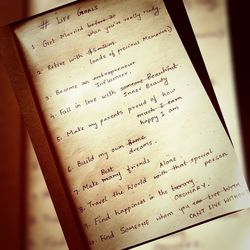 # LIFE GOALS
1. Get Married before so when you're really ready.
2. Retire with $5million loads of precious Memories)
3. Become an entrepreneur Influencer.
4. Fall in love with someone Beautiful Inner Beauty
5. Make my parents proud of how much I earn
happy I am
6. Build my own home dreams.
7. Make many Best friends
8. Travel the World Alone with that special person
9. Find happiness in the luxury ORDINARY.
10. Find Someone whom you can live with CANT LIVE WITHOUT